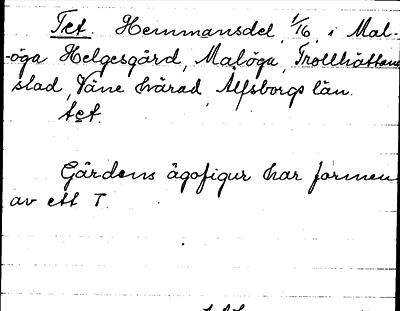 Tet Hemmansdel, 1/16, i Mal-
-öga Helgesgård, Malöga, Trollhättans
stad, Väne härad Älfsborgs län.
tet.
Gårdens ägofigur har formen
av ett T.